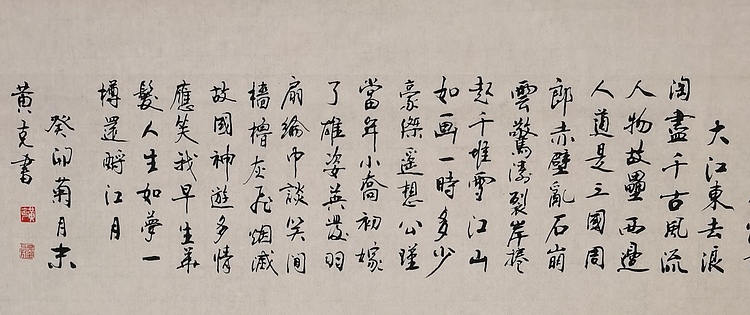 大江東去浪
淘盡千古風流
人物故壘西邊
人道是三國周
郎赤壁亂石崩
雲驚濤裂岸捲
起千堆雪江山
如画一時多少
豪傑遥想公瑾
當年小喬初嫁
了雄姿英發羽
扇綸巾談笑间
檣櫓灰飛烟滅
故國神遊多情
應笑我早生華
髮人生如夢一
樽還酹江月
癸卯菊月末
黄克書